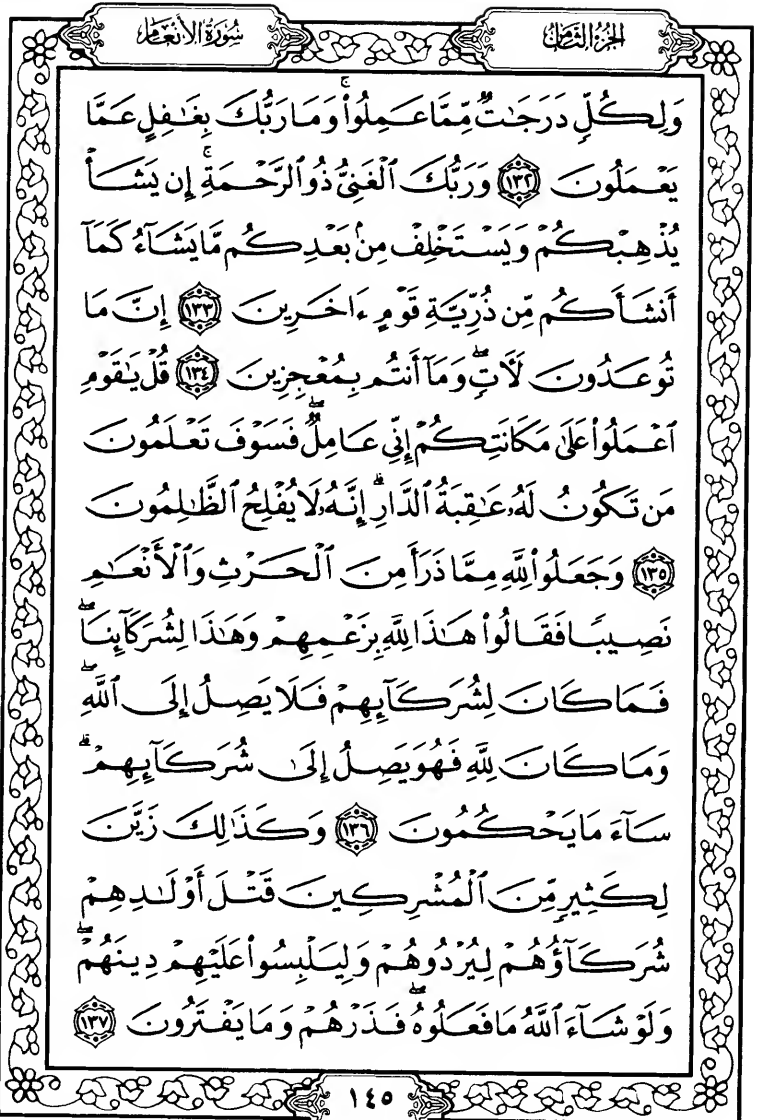 سُورَةُ الأَنْعَامِ
الجُزْءُ الثَّامِنُ
وَلِكُلٍّ دَرَجَـٰتٌ مِّمَّا عَمِلُوا۟ ۚ وَمَا رَبُّكَ بِغَـٰفِلٍ عَمَّا
يَعْمَلُونَ ﴿١٣٢﴾ وَرَبُّكَ ٱلْغَنِىُّ ذُو ٱلرَّحْمَةِ ۚ إِن يَشَأْ
يُذْهِبْكُمْ وَيَسْتَخْلِفْ مِنۢ بَعْدِكُم مَّا يَشَآءُ كَمَآ
أَنشَأَكُم مِّن ذُرِّيَّةِ قَوْمٍ ءَاخَرِينَ ﴿١٣٣﴾ إِنَّ مَا
تُوعَدُونَ لَـَٔاتٍ ۖ وَمَآ أَنتُم بِمُعْجِزِينَ ﴿١٣٤﴾ قُلْ يَـٰقَوْمِ
ٱعْمَلُوا۟ عَلَىٰ مَكَانَتِكُمْ إِنِّى عَامِلٌ ۖ فَسَوْفَ تَعْلَمُونَ
مَن تَكُونُ لَهُۥ عَـٰقِبَةُ ٱلدَّارِ ۗ إِنَّهُۥ لَا يُفْلِحُ ٱلظَّـٰلِمُونَ
﴿١٣٥﴾ وَجَعَلُوا۟ لِلَّهِ مِمَّا ذَرَأَ مِنَ ٱلْحَرْثِ وَٱلْأَنْعَـٰمِ
نَصِيبًا فَقَالُوا۟ هَـٰذَا لِلَّهِ بِزَعْمِهِمْ وَهَـٰذَا لِشُرَكَآئِنَا ۖ
فَمَا كَانَ لِشُرَكَآئِهِمْ فَلَا يَصِلُ إِلَى ٱللَّهِ ۖ
وَمَا كَانَ لِلَّهِ فَهُوَ يَصِلُ إِلَىٰ شُرَكَآئِهِمْ ۗ
سَآءَ مَا يَحْكُمُونَ ﴿١٣٦﴾ وَكَذَٰلِكَ زَيَّنَ
لِكَثِيرٍ مِّنَ ٱلْمُشْرِكِينَ قَتْلَ أَوْلَـٰدِهِمْ
شُرَكَآؤُهُمْ لِيُرْدُوهُمْ وَلِيَلْبِسُوا۟ عَلَيْهِمْ دِينَهُمْ ۖ
وَلَوْ شَآءَ ٱللَّهُ مَا فَعَلُوهُ ۖ فَذَرْهُمْ وَمَا يَفْتَرُونَ ﴿١٣٧﴾
١٤٥